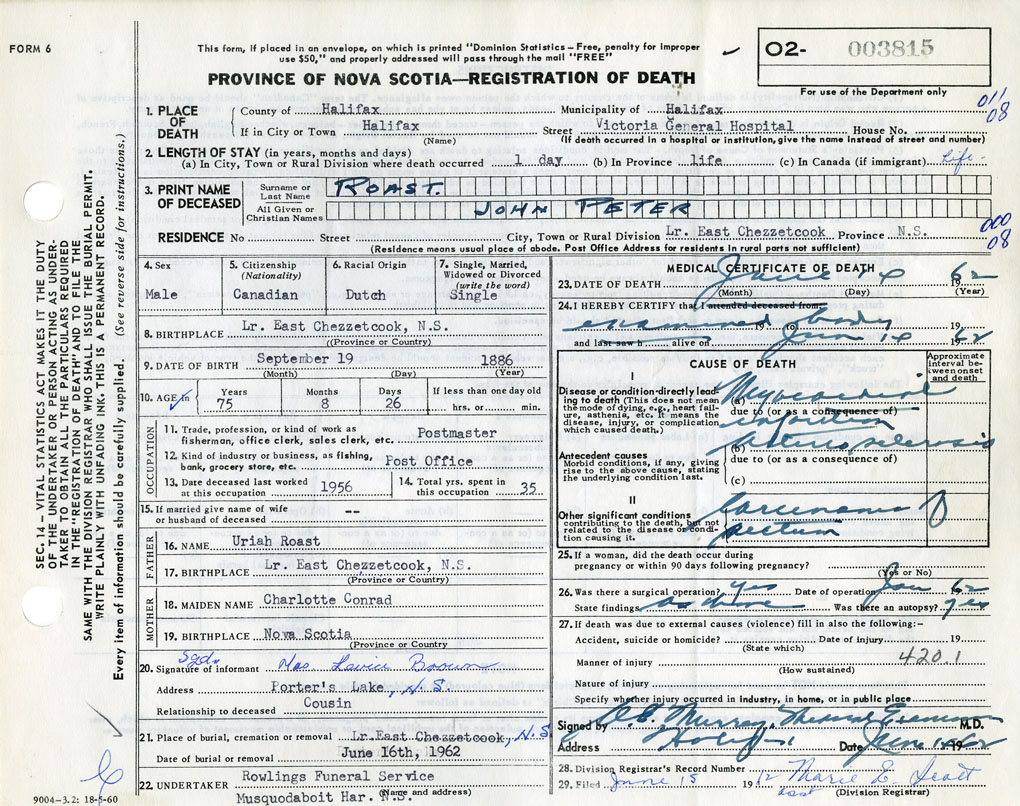 FORM 6
This form, if placed in an envelope, on which is printed "Dominion Statistics – Free, penalty for improper
use $50," and properly addressed will pass through the mail "FREE"
O2- 003815
For use of the Department only
PROVINCE OF NOVA SCOTIA—REGISTRATION OF DEATH
011
08
1. PLACE OF DEATH
County of Halifax Municipality of Halifax
If in City or Town Halifax Street Victoria General Hospital House No.
(Name) (If death occurred in a hospital or institution, give the name instead of street and number)
2. LENGTH OF STAY (in years, months and days)
(a) In City, Town or Rural Division where death occurred 1 day (b) In Province life (c) In Canada (if immigrant) Life-
3. PRINT NAME OF DECEASED
Surname or Last Name ROAST.
All Given or Christian Names JOHN PETER
000
08
RESIDENCE No Street City, Town or Rural Division Lr. East Chezzetcook Province N.S.
(Residence means usual place of abode. Post Office Address for residents in rural parts not sufficient)
4. Sex
Male
5. Citizenship
(Nationality)
Canadian
6. Racial Origin
Dutch
7. Single, Married,
Widowed or Divorced
(write the word)
Single
8. BIRTHPLACE Lr. East Chezzetcook, N.S.
(Province or Country)
9. DATE OF BIRTH September 19 1886
(Month) (Day) (Year)
10. AGE in
Years Months Days If less than one day old
75 8 26 hrs. or min.
OCCUPATION
11. Trade, profession, or kind of work as
fisherman, office clerk, sales clerk, etc. Postmaster
12. Kind of industry or business, as fishing,
bank, grocery store, etc. Post Office
13. Date deceased last worked
at this occupation 1956
14. Total yrs. spent in
this occupation 35
15. If married give name of wife
or husband of deceased --
FATHER
16. NAME Uriah Roast
17. BIRTHPLACE Lr. East Chezzetcook, N.S.
(Province or Country)
MOTHER
18. MAIDEN NAME Charlotte Conrad
19. BIRTHPLACE Nova Scotia
(Province or Country)
Sgd.
20. Signature of informant Mrs Brown
Address Porter's Lake, N.S.
Relationship to deceased Cousin
21. Place of burial, cremation or removal Lr.East Chezzetcook, N.S.
Date of burial or removal June 16th, 1962
22. UNDERTAKER Rowlings Funeral Service
Musquodaboit Har. N.S.
(Name and address)
MEDICAL CERTIFICATE OF DEATH
23. DATE OF DEATH June 14 62
(Month) (Day) (Year)
24. I HEREBY CERTIFY that I attended deceased from
examined 19 to body 19
and last saw h alive on June 14 1962
CAUSE OF DEATH
Approximate
interval between onset
and death
I
Disease or condition directly leading to death (This does not mean
the mode of dying, e.g., heart failure, asthenia, etc. It means the
disease, injury, or complication
which caused death.)
(a) Myocardial
due to (or as a consequence of)
infarction
(b) Arteriosclerosis
due to (or as a consequence of)
(c)
Antecedent causes
Morbid conditions, if any, giving
rise to the above cause, stating
the underlying condition last.
II
Other significant conditions
contributing to the death, but not
related to the disease or condition causing it.
Carcinoma
rectum
25. If a woman, did the death occur during
pregnancy or within 90 days following pregnancy?
(Yes or No)
26. Was there a surgical operation? yes Date of operation Jan 62
State findings as above Was there an autopsy? yes
27. If death was due to external causes (violence) fill in also the following:–
Accident, suicide or homicide? Date of injury 19
(State which)
Manner of injury 420.1
(How sustained)
Nature of injury
Specify whether injury occurred in industry, in home, or in public place
Signed by Murray, M.D.
Address Halifax Date June 1962
28. Division Registrar's Record Number
29. Filed June 15 1962 Marie E. Scott
asst (Division Registrar)
SEC. 14 – VITAL STATISTICS ACT MAKES IT THE DUTY
OF THE UNDERTAKER OR PERSON ACTING AS UNDERTAKER TO OBTAIN ALL THE PARTICULARS REQUIRED
IN THE "REGISTRATION OF DEATH" AND TO FILE THE
SAME WITH THE DIVISION REGISTRAR WHO SHALL ISSUE THE BURIAL PERMIT.
WRITE PLAINLY WITH UNFADING INK. THIS IS A PERMANENT RECORD.
Every item of information should be carefully supplied. (See reverse side for instructions.)
9004-3.2: 18-5-60